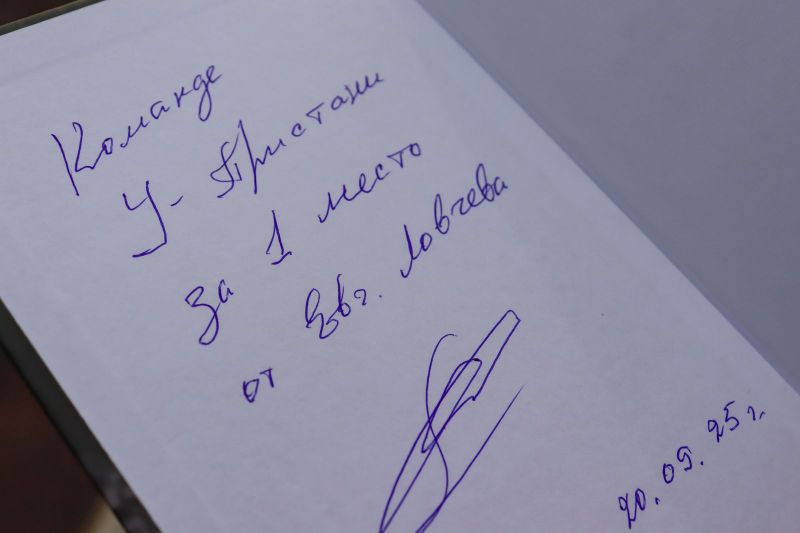 Команде
У-Пристани
за 1 место
от Евг. Ловчева
20.09.25г.